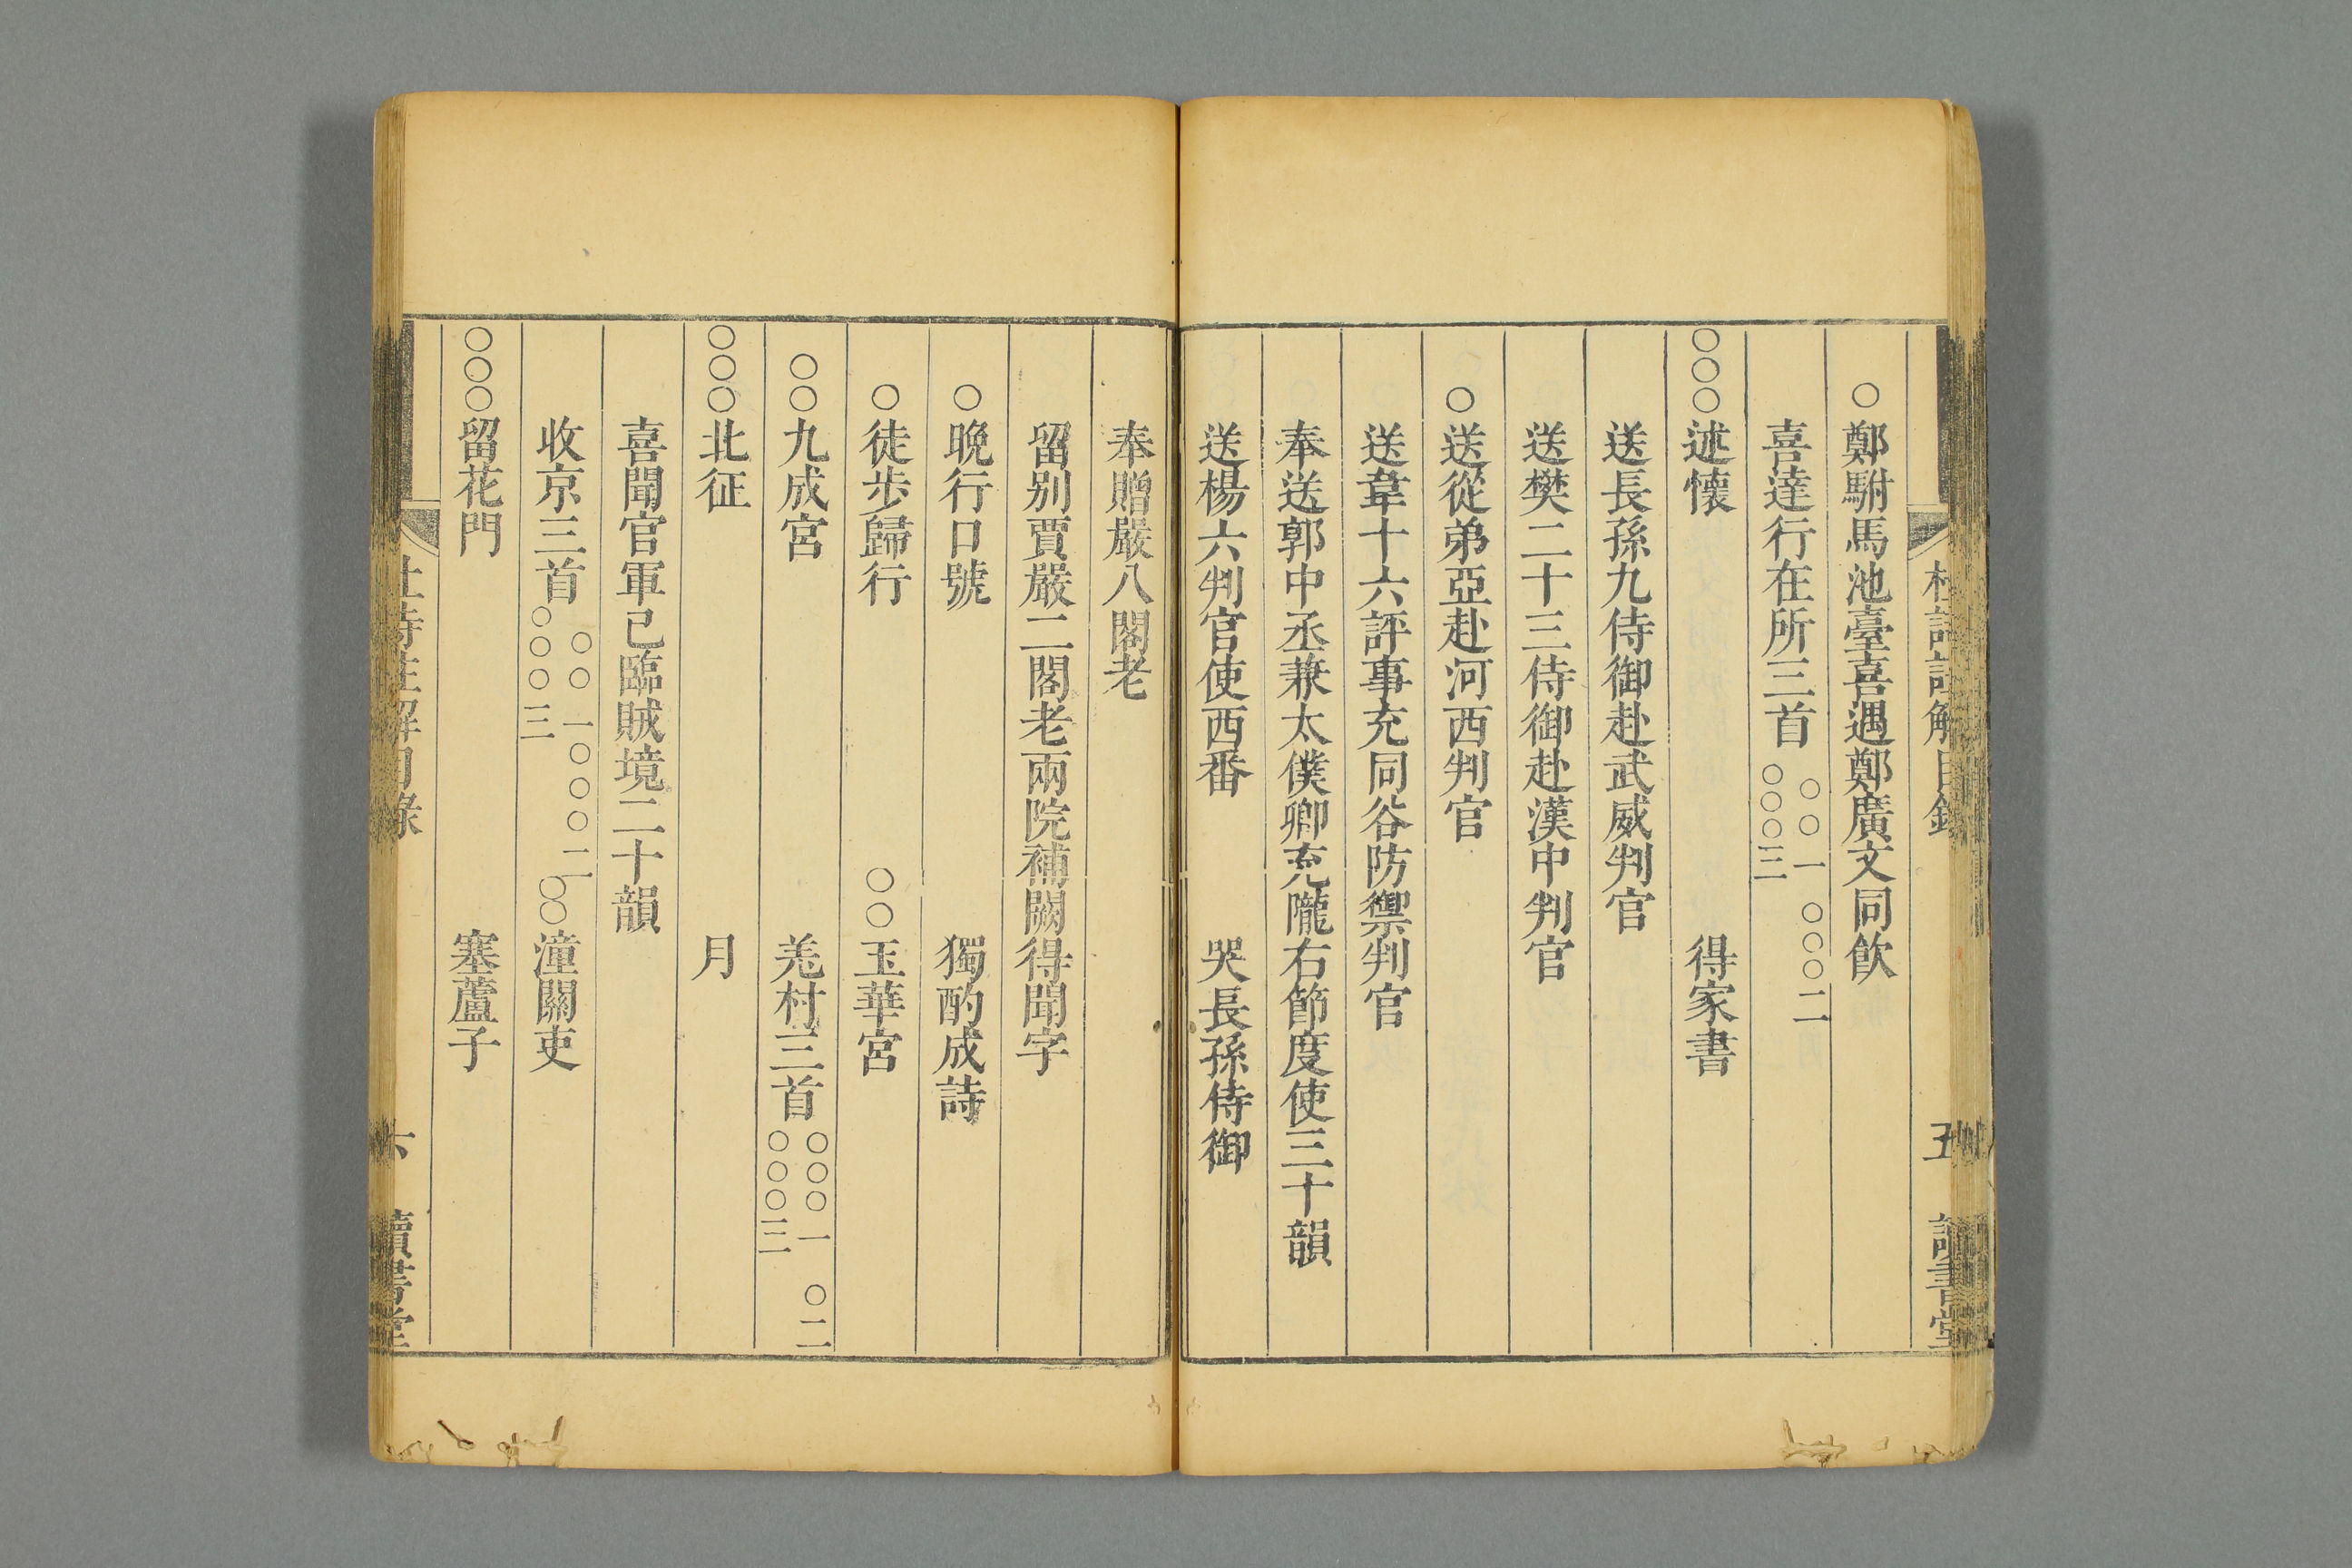 杜詩註解目錄 五 讀書堂
○鄭駙馬池臺喜遇鄭廣文同飲
喜達行在所三首 ○○一 ○○○二 ○○○三
○○○述懷 得家書
送長孫九侍御赴武威判官
送樊二十三侍御赴漢中判官
○送從弟亞赴河西判官
送韋十六評事充同谷防禦判官
奉送郭中丞兼太僕卿充隴右節度使三十韻
送楊六判官使西番 哭長孫侍御
奉贈嚴八閣老
留别賈嚴二閣老兩院補闕得聞字
○晚行口號 獨酌成詩
○徒步歸行 ○○玉華宮
○○九成宮 羌村三首 ○○○一 ○二 ○○○三
○○○北征 月
喜聞官軍已臨賊境二十韻
收京三首 ○○一 ○○○二 ○○○三 ○○潼關吏
○○○留花門 塞蘆子
杜詩註解目錄 六 讀書堂